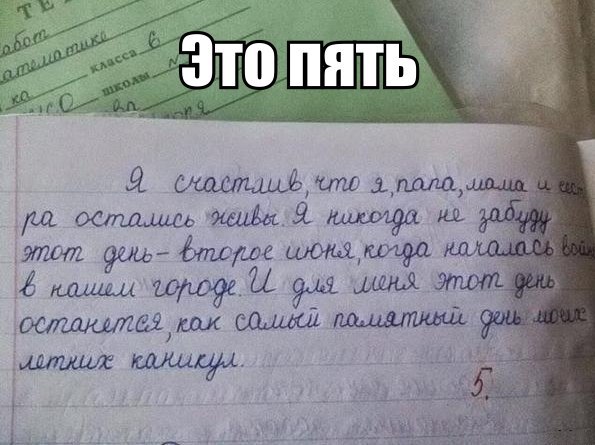 ТЕ
абот
атематике
ка класса 6
школы №
Это пять
Я счастлив, что я, папа, мама и сест
ра остались живы. Я никогда не забуду
этот день – второе июня, когда началась войн
в нашем городе. И для меня этот день
останется, как самый памятный день моих
летних каникул.
5.